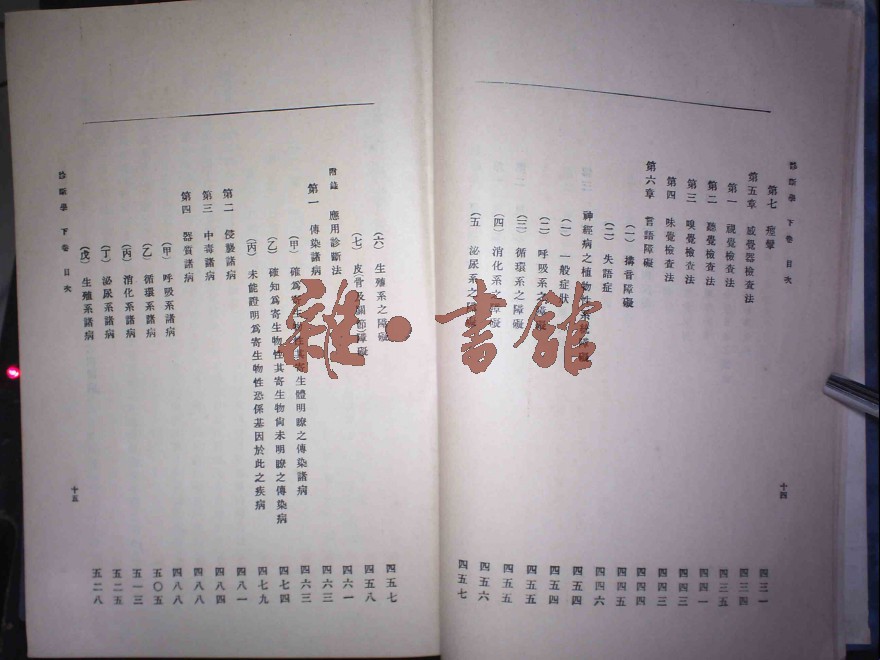 診斷學 下卷 目次 十四
第七 痙攣 四三一
第五章 感覺器檢查法 四三四
第一 視覺檢查法 四三五
第二 聽覺檢查法 四四一
第三 嗅覺檢查法 四四三
第四 味覺檢查法 四四三
第六章 言語障礙 四四四
(一) 搆音障礙 四四五
(二) 失語症 四四六
神經病之植物性系統障礙 四五四
(一) 一般症狀 四五四
(二) 呼吸系之障礙 四五五
(三) 循環系之障礙 四五五
(四) 消化系之障礙 四五六
(五) 泌尿系之障礙 四五七
(六) 生殖系之障礙 四五七
(七) 皮骨及關節障礙 四五八
附錄 應用診斷法 四六一
第一 傳染諸病 四六三
(甲) 確爲寄生物性其寄生體明瞭之傳染諸病 四六三
(乙) 確知爲寄生物性其寄生物尚未明瞭之傳染病 四七四
(丙) 未能證明爲寄生物性恐係基因於此之疾病 四七九
第二 侵襲諸病 四八一
第三 中毒諸病 四八四
第四 器質諸病 四八八
(甲) 呼吸系諸病 四八八
(乙) 循環系諸病 五〇五
(丙) 消化系諸病 五一三
(丁) 泌尿系諸病 五二五
(戊) 生殖系諸病 五二八
診斷學 下卷 目次 十五
雜·書館